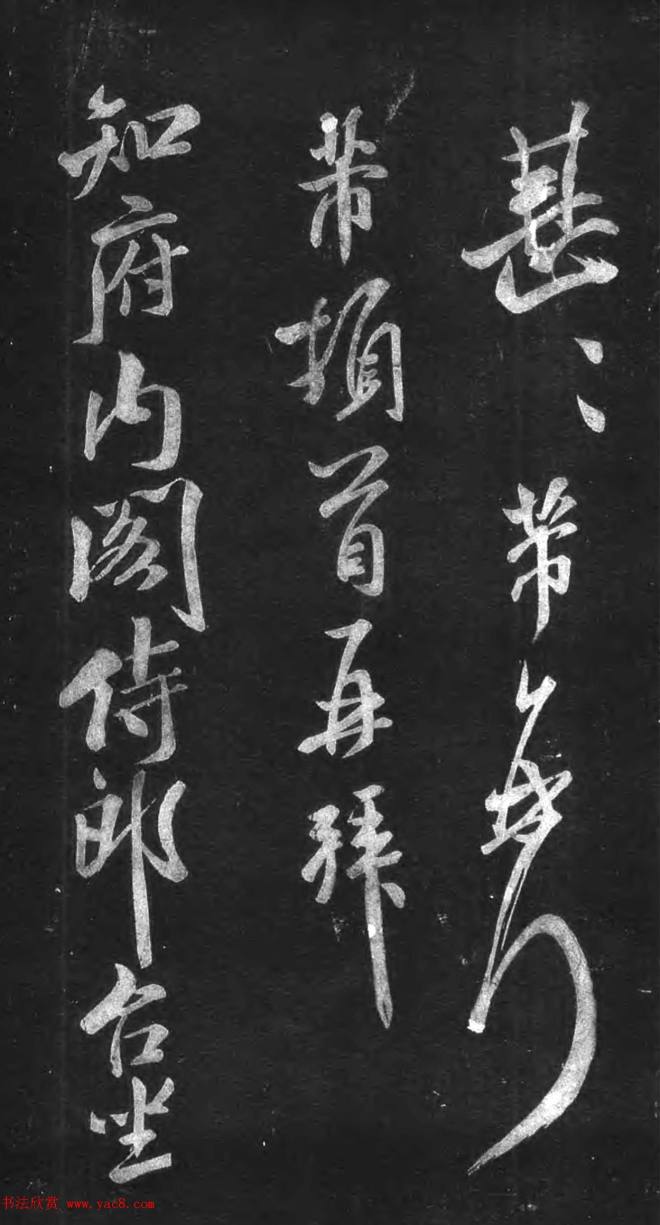 甚〻芾
芾頓首再拜
知府内閣侍郎台坐
书法欣赏 www.yac8.com